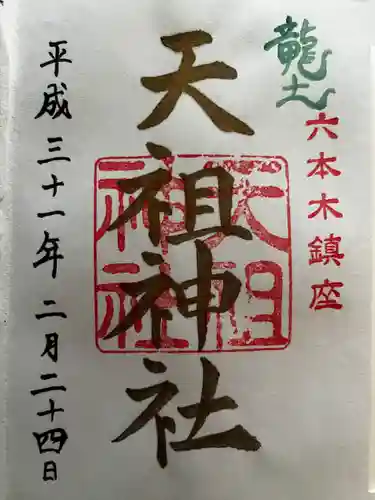 龍土
六本木鎮座
天祖神社
天祖神社
平成三十一年二月二十四日